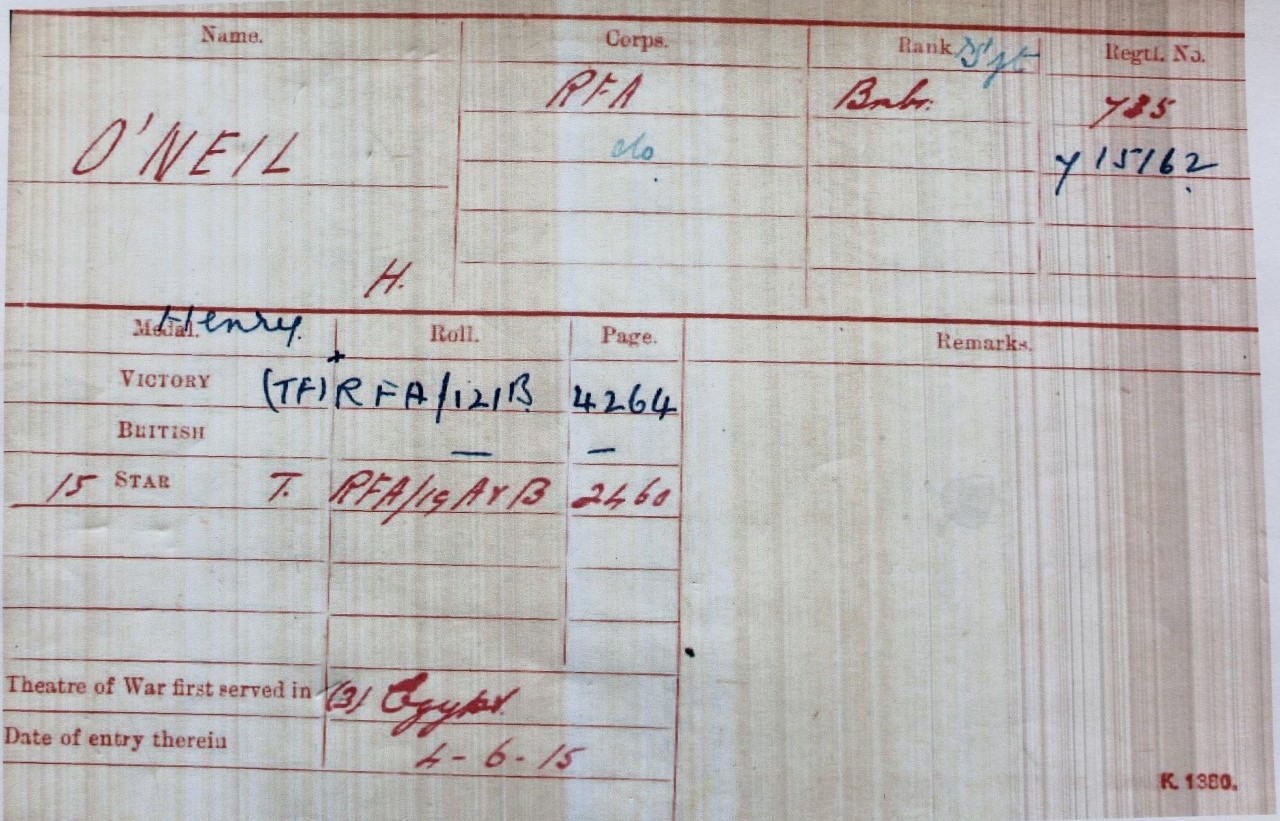 Name. Corps. Rank Sjt Regtl. No.
RFA Bmbr. 735
O'NEIL do 715162
H.
Henry.
Medal. Roll. Page. Remarks.
VICTORY (TF) RFA/121B 4264
BRITISH — —
15 STAR T. RFA/19 A & B 2460
Theatre of War first served in (3) Egypt.
Date of entry therein 4-6-15
K. 1380.